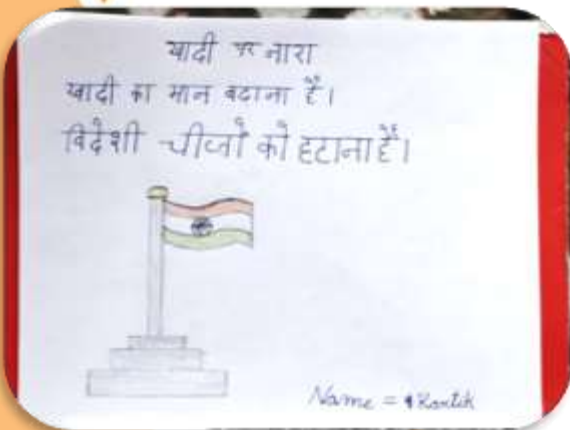 खादी पर नारा
खादी का मान बढाना है।
विदेशी चीजों को हटाना है।
Name = Kartik